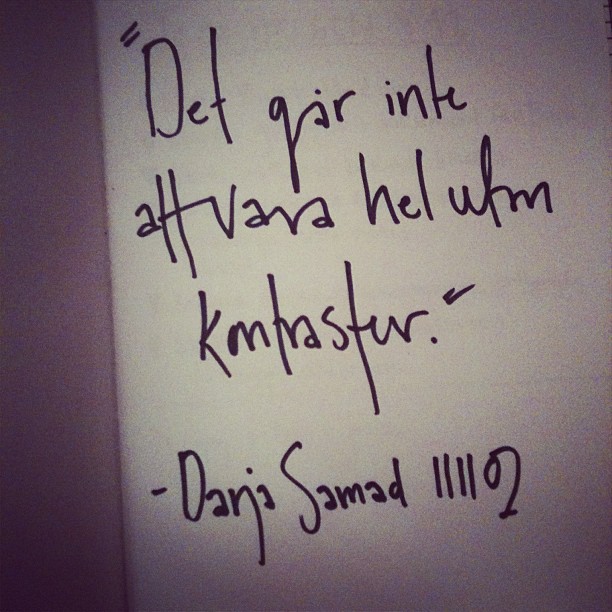 "Det går inte
att vara hel utan
kontraster."
- Danja Samad 111102